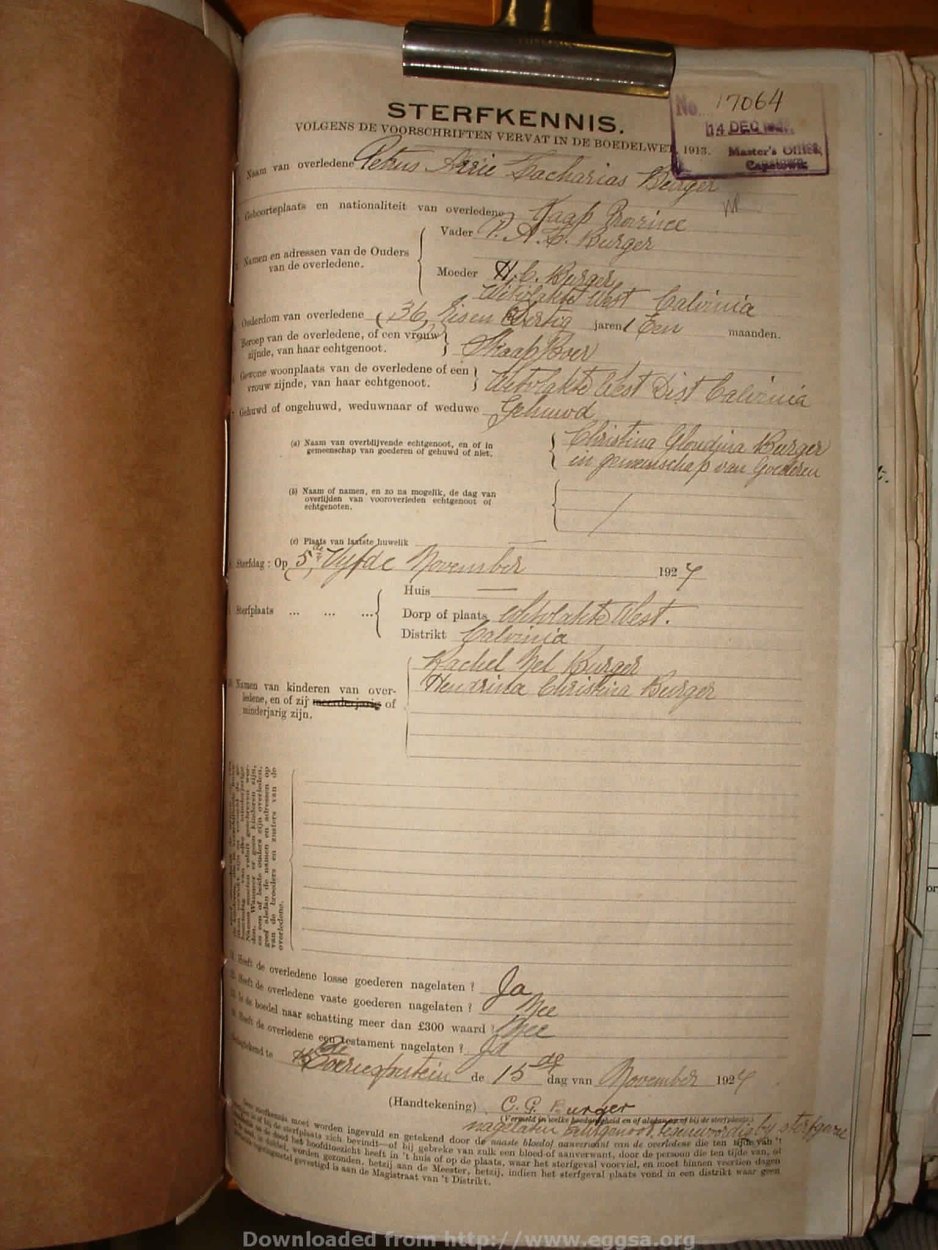 No. 17064
14 DEC
Master's Office,
Capetown
STERFKENNIS.
VOLGENS DE VOORSCHRIFTEN VERVAT IN DE BOEDELWET, 1913.
Naam van overledene Petrus Arrie Zacharias Burger
Geboorteplaats en nationaliteit van overledene Kaap Provincie
Namen en adressen van de Ouders van de overledene.
Vader P. A. Z. Burger
Moeder H. C. Burger
West Calvinia
Ouderdom van overledene (36) Sisen Dertig jaren 1 Een maanden.
Beroep van de overledene, of een vrouw zijnde, van haar echtgenoot.
Skaap Boer
Gewone woonplaats van de overledene of een vrouw zijnde, van haar echtgenoot.
West Dist Calvinia
Gehuwd of ongehuwd, weduwnaar of weduwe Gehuwd
(a) Naam van overblijvende echtgenoot, en of in gemeenschap van goederen of gehuwd of niet.
Christina Gloudina Burger
in gemeenschap van Goederen
(b) Naam of namen, en zo na mogelik, de dag van overlijden van vooroverleden echtgenoot of echtgenoten.
(c) Plaats van laatste huwelik
Sterfdag : Op 5de Vyfde November 1924
Huis
Sterfplaats ... ... ...
Dorp of plaats West.
Distrikt Calvinia
Namen van kinderen van overledene, en of zij meerderjarig of minderjarig zijn.
Rachel Nel Burger
Hendrina Christina Burger
van de broeders en zusters van de overledene.
Heeft de overledene losse goederen nagelaten ? Ja
Heeft de overledene vaste goederen nagelaten ? Nee
Is de boedel naar schatting meer dan £300 waard Nee
Heeft de overledene een testament nagelaten ? Ja
Getekend te de 15 de dag van November 1924
(Handtekening) C. G. Burger
(Vermeld in welke hoedanigheid en of al dan niet bij de sterfplaats.)
nagelaten echtgenoot, teenwoordig by sterfgeval
Deze sterfkennis moet worden ingevuld en getekend door de naaste bloed of aanverwant van de overledene die ten tijde van 't
bij de sterfplaats zich bevindt—of bij gebreke van zulk een bloed- of aanverwant, door de persoon die ten tijde van, of
de dood het hoofdtoezicht heeft in 't huis of op de plaats, waar het sterfgeval voorviel, en moet binnen veertien dagen
worden gezonden, hetzij aan de Meester, hetzij, indien het sterfgeval plaats vond in een distrikt waar geen
gevestigd is aan de Magistraat van 't Distrikt.
Downloaded from http://www.eggsa.org